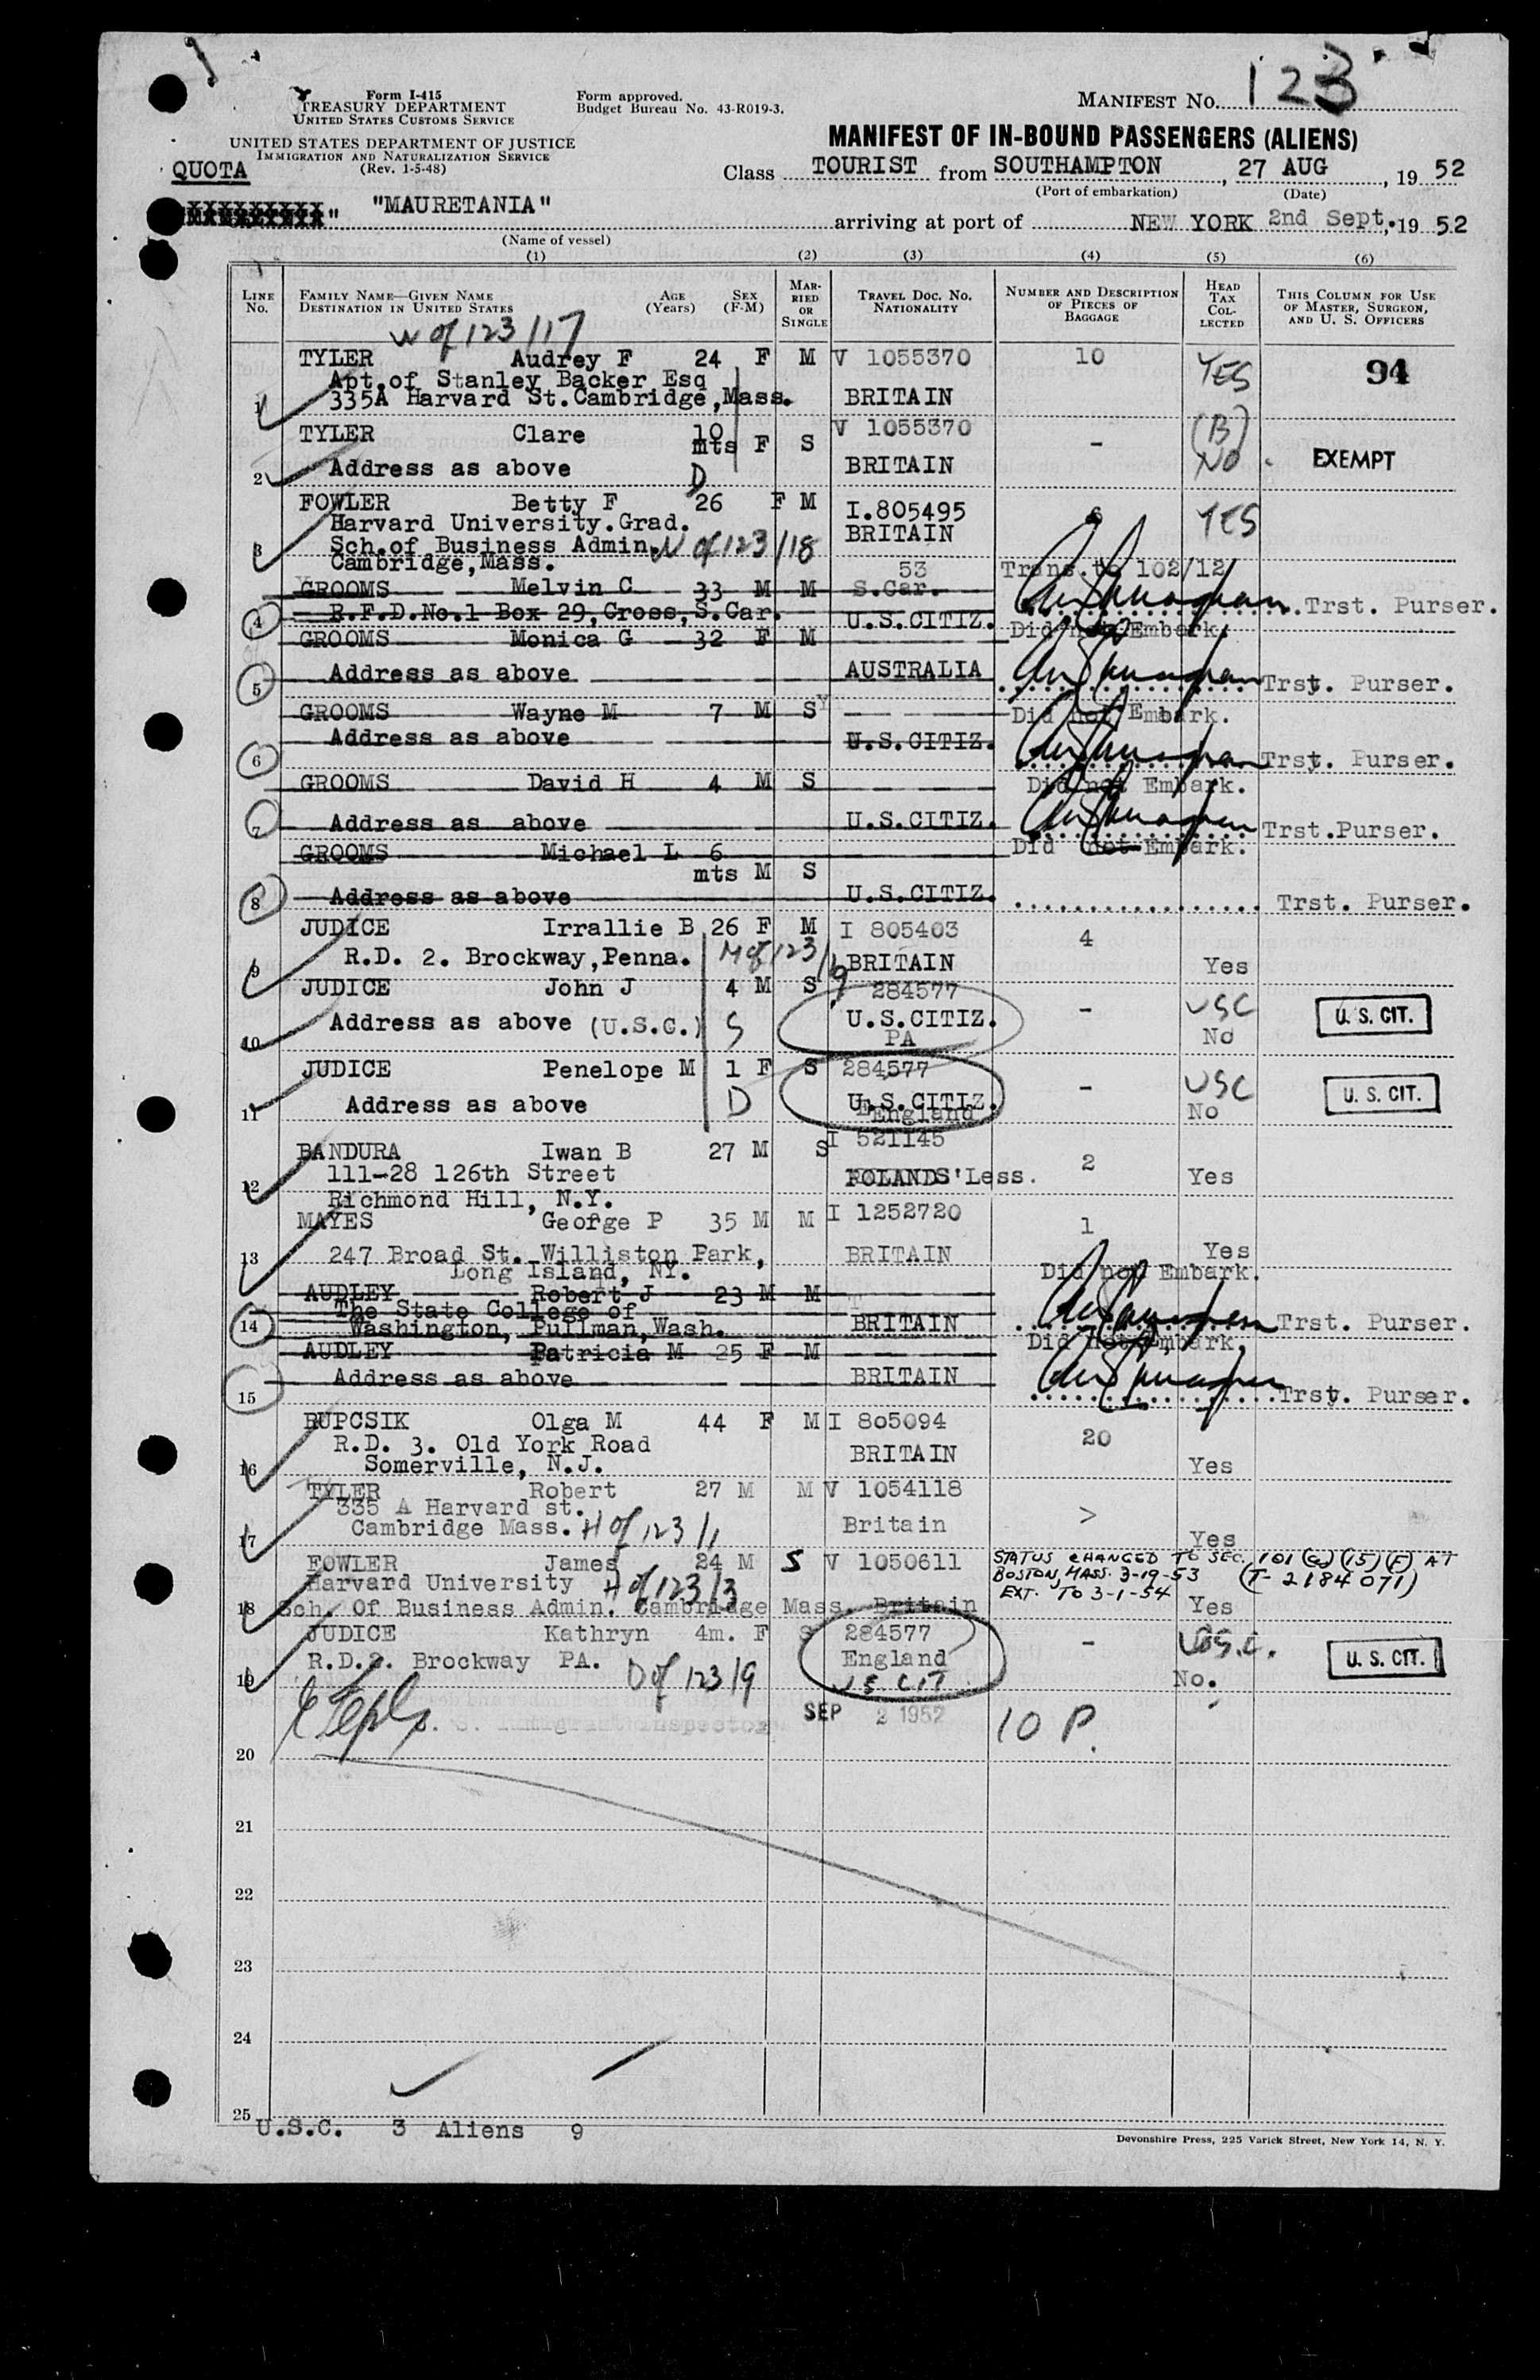 123
Form I-415
TREASURY DEPARTMENT
UNITED STATES CUSTOMS SERVICE
Form approved.
Budget Bureau No. 43-R019-3.
MANIFEST No. 123
UNITED STATES DEPARTMENT OF JUSTICE
IMMIGRATION AND NATURALIZATION SERVICE
(Rev. 1-5-48)
MANIFEST OF IN-BOUND PASSENGERS (ALIENS)
QUOTA
Class TOURIST from SOUTHAMPTON, 27 AUG, 1952
(Port of embarkation) (Date)
"MAURETANIA" arriving at port of NEW YORK 2nd Sept. 1952
(Name of vessel)
(1) (2) (3) (4) (5) (6)
LINE No. FAMILY NAME—GIVEN NAME DESTINATION IN UNITED STATES AGE (Years) SEX (F-M) MARRIED OR SINGLE TRAVEL DOC. NO. NATIONALITY NUMBER AND DESCRIPTION OF PIECES OF BAGGAGE HEAD TAX COLLECTED THIS COLUMN FOR USE OF MASTER, SURGEON, AND U. S. OFFICERS
W of 123/17
TYLER Audrey F 24 F M V 1055370 10 YES 94
Apt.of Stanley Backer Esq
1 335A Harvard St.Cambridge,Mass. BRITAIN
TYLER Clare 10 mts F S V 1055370 - (B) NO EXEMPT
2 Address as above D BRITAIN
FOWLER Betty F 26 F M I.805495 YES
Harvard University.Grad. BRITAIN
3 Sch.of Business Admin. W of 123/18
Cambridge,Mass. 53 Trans.to 102/12
GROOMS Melvin C 33 M M S.Car.
4 R.F.D.No.1 Box 29,Cross,S.Car. U.S.CITIZ. Trst. Purser.
GROOMS Monica G 32 F M Did not Embark.
5 Address as above AUSTRALIA Trst. Purser.
GROOMS Wayne M 7 M S Did not Embark.
6 Address as above U.S.CITIZ. Trst. Purser.
GROOMS David H 4 M S Did not Embark.
7 Address as above U.S.CITIZ. Trst.Purser.
GROOMS Michael L 6 mts M S Did not Embark.
8 Address as above U.S.CITIZ. Trst. Purser.
JUDICE Irrallie B 26 F M I 805403 4
9 R.D. 2. Brockway,Penna. M of 123/19 BRITAIN Yes
JUDICE John J 4 M S 284577 - USC
10 Address as above (U.S.C.) S U.S.CITIZ. PA No U. S. CIT.
JUDICE Penelope M 1 F S 284577 - USC
11 Address as above D U.S.CITIZ. England No U. S. CIT.
BANDURA Iwan B 27 M S I 521145 2
12 111-28 126th Street S'Less. Yes
Richmond Hill, N.Y.
MAYES George P 35 M M I 1252720 1
13 247 Broad St. Williston Park, BRITAIN Yes
Long Island, NY. Did not Embark.
AUDLEY Robert J 23 M M
The State College of
14 Washington, Pullman,Wash. BRITAIN Trst. Purser.
AUDLEY Patricia M 25 F M Did not Embark.
15 Address as above BRITAIN Trst. Purser.
RUPCSIK Olga M 44 F M I 805094 20
R.D. 3. Old York Road BRITAIN
16 Somerville, N.J. Yes
TYLER Robert 27 M M V 1054118
335 A Harvard st.
17 Cambridge Mass. H of 123/1 Britain Yes
FOWLER James 24 M S V 1050611 STATUS CHANGED TO SEC. 101(a)(15)(F) AT
Harvard University H of 123/3 BOSTON, MASS. 3-19-53 (T-2184071)
EXT. TO 3-1-54
18 Sch. Of Business Admin. Cambridge Mass. Britain Yes
JUDICE Kathryn 4m. F S 284577 - U.S.C.
R.D.2. Brockway PA. D of 123/9 England U. S. CIT.
19 U S CIT No.
Immigrant Inspector SEP 2 1952 10 P.
20
21
22
23
24
25
U.S.C. 3 Aliens 9
Devonshire Press, 225 Varick Street, New York 14, N. Y.